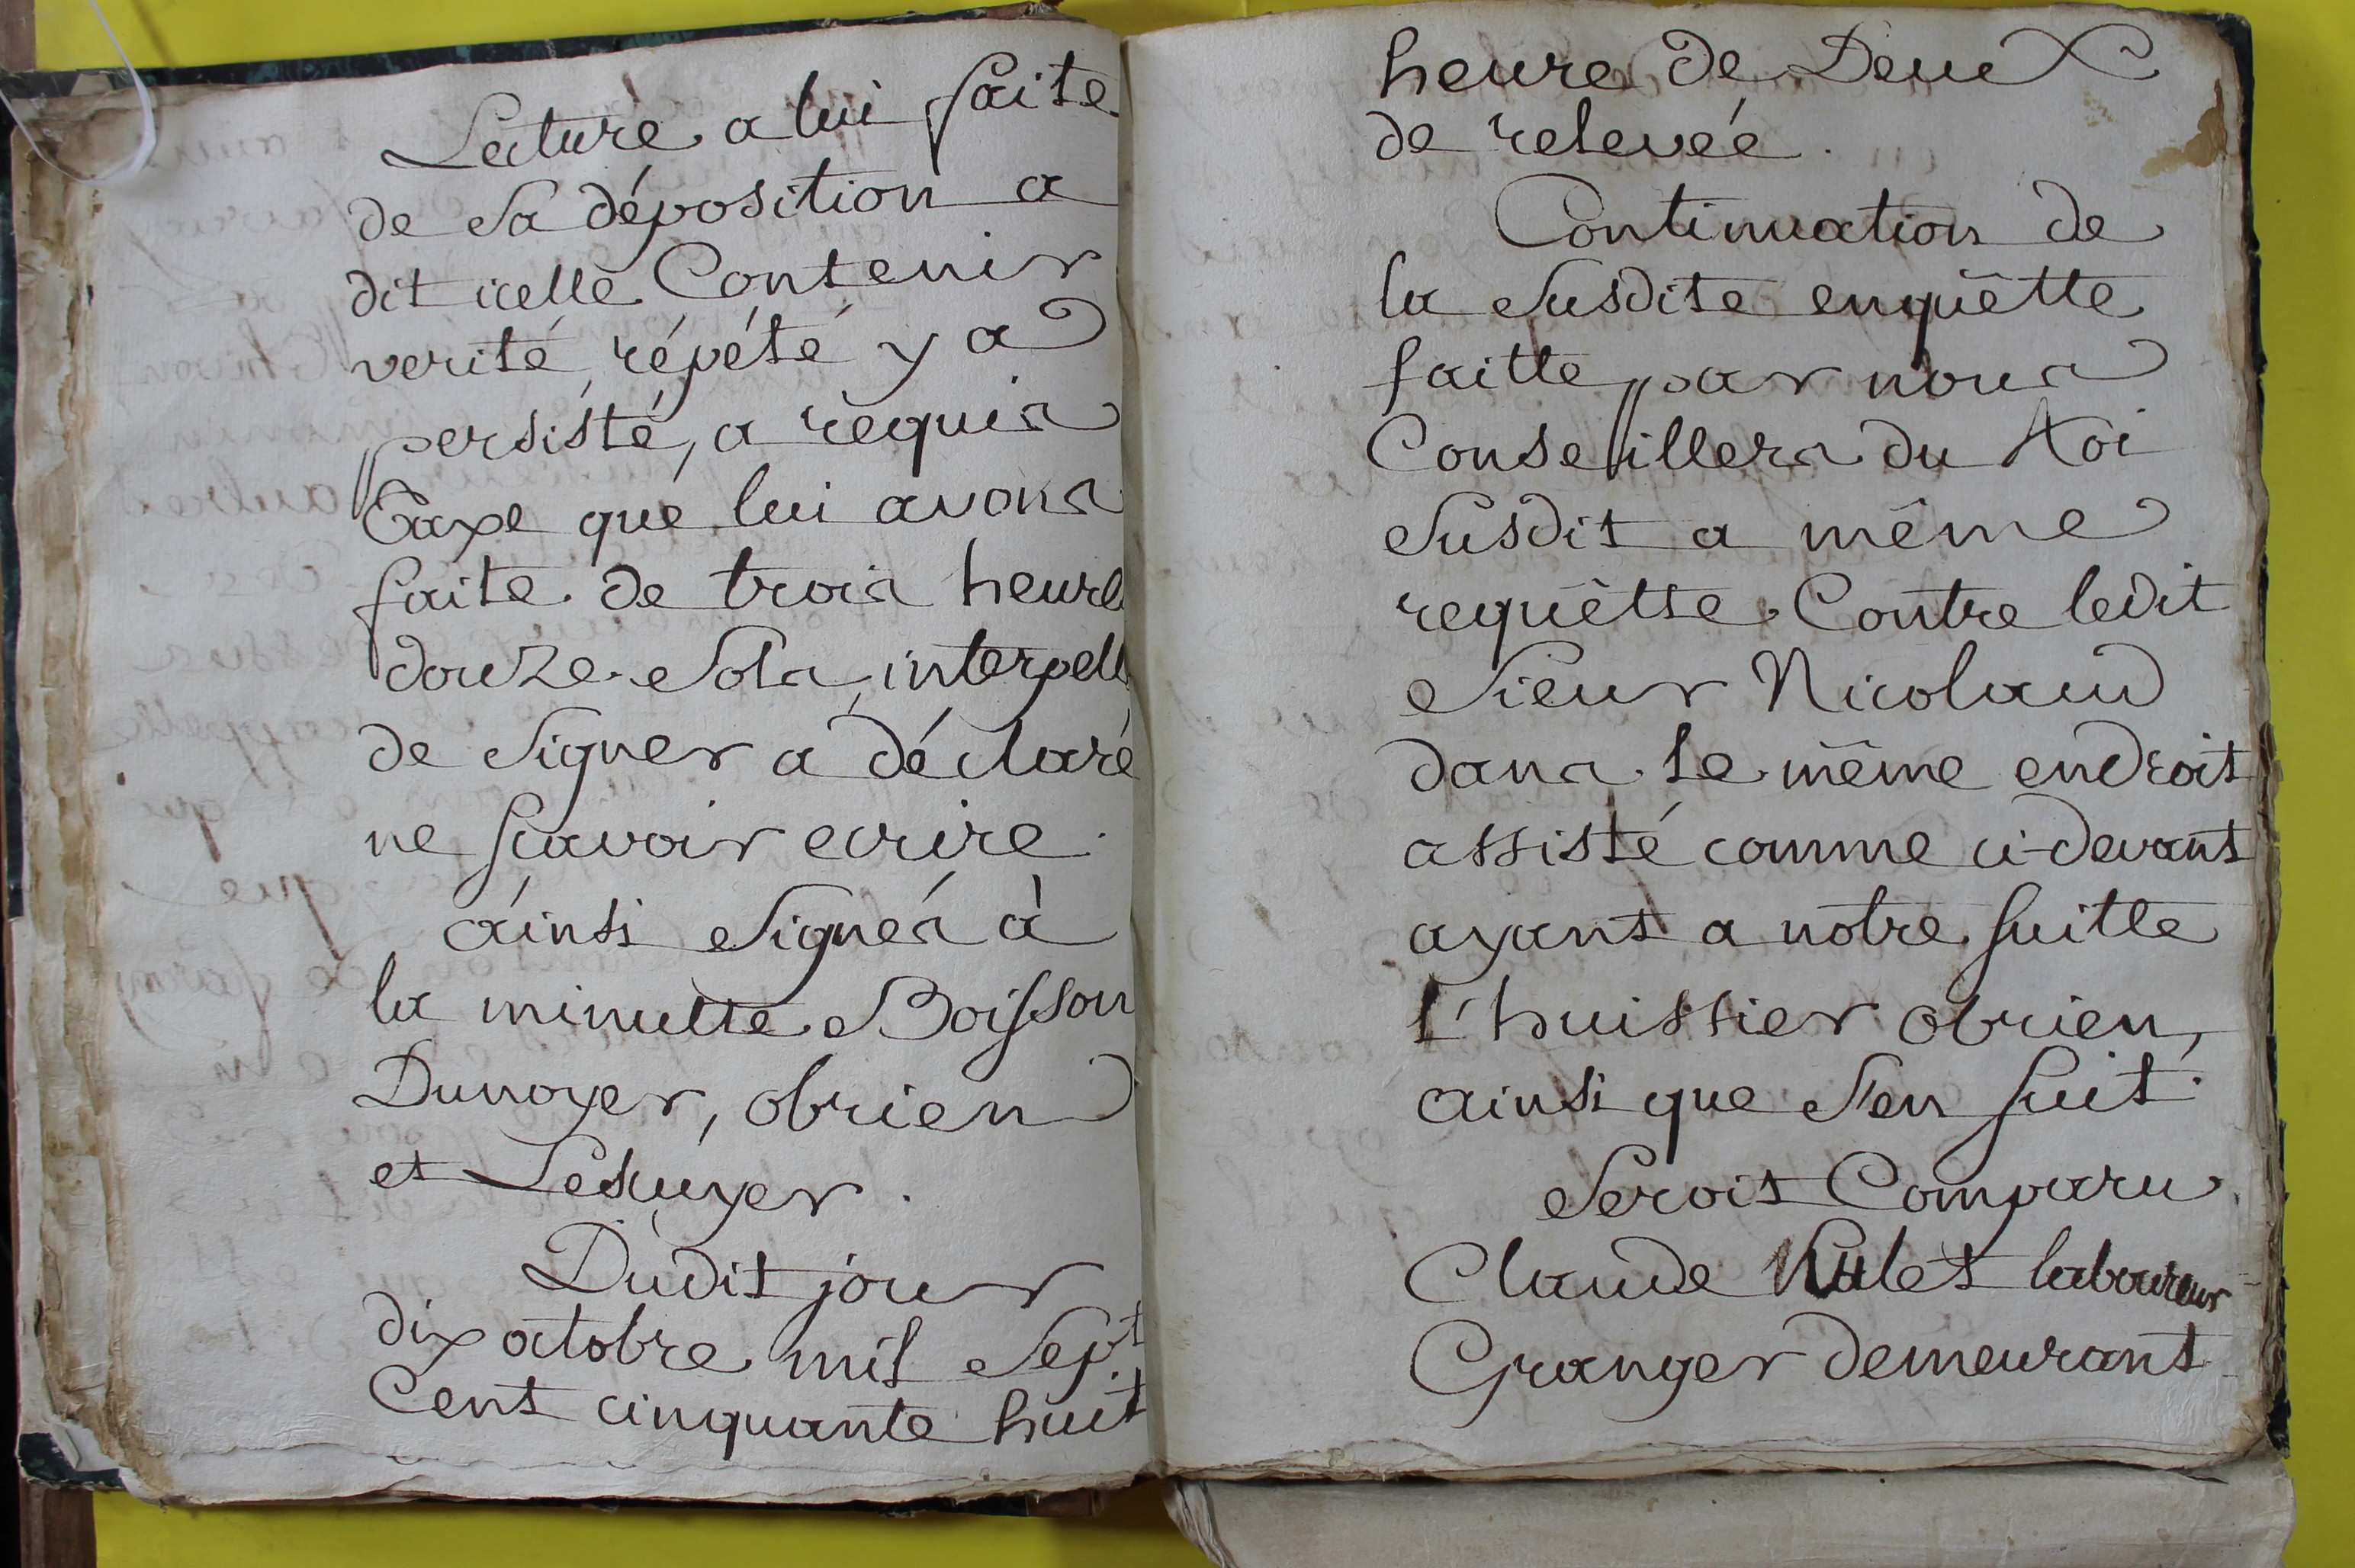 Lecture a lui faite
de sa déposition a
dit icelle Contenir
verité, répété y a
persisté, a requis
Taxe que lui avons
faite de trois heure
douze sols, interpell
de signer a déclaré
ne sçavoir ecrire.
ainsi signés à
la minutte Boisson
Dunoyer, obrien
et Lescuyer.
Dudit jour
dix octobre mil Sept
Cent cinquante huit
heure de Deux
de relevée.
Continuation de
la Susdite enquêtte
faitte par nous
Conseillers du Roi
Susdit a même
requêtte Contre ledit
Sieur Nicolaud
dans le même endroit
assisté comme ci-devant
ayant a notre suitte
l'huissier obrien,
ainsi que s'en suit.
Seroit Comparu
Claude laboureur
Granger demeurant